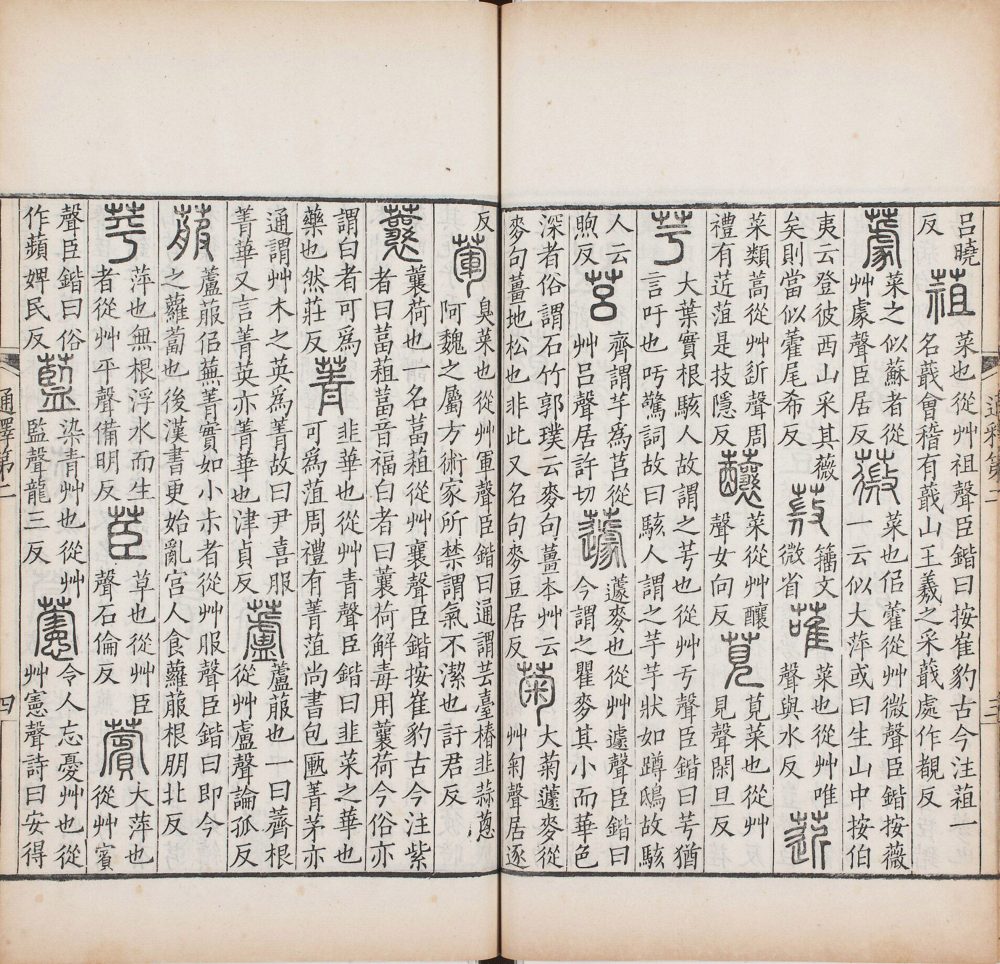 呂曉
反
蒩
菜也從艸祖聲臣鍇曰按崔豹古今注蒩一
名蕺會稽有蕺山王羲之采蕺處作覩反
䕮
菜之似蘇者從
艸豦聲臣居反
薇
菜也佀藿從艸微聲臣鍇按薇
一云似大萍或曰生山中按伯
夷云登彼西山采其薇
矣則當似藿尾希反
籒文
微省
蓶
菜也從艸唯
聲與水反
菦
菜類蒿從艸近聲周
禮有菦菹是技隱反
蘸
菜從艸釀
聲女向反
莧
莧菜也從艸
見聲閑旦反
芌
大葉實根駭人故謂之芌也從艸亏聲臣鍇曰芌猶
言吁也吁驚詞故曰駭人謂之芋芋狀如蹲鴟故駭
人云
煦反
莒
齊謂芋爲莒從
艸呂聲居許切
蘧
蘧麥也從艸遽聲臣鍇曰
今謂之瞿麥其小而華色
深者俗謂石竹郭璞云麥句薑本艸云
麥句薑地松也非此又名句麥豆居反
菊
大菊蘧麥從
艸匊聲居逐
反
葷
臭菜也從艸軍聲臣鍇曰通謂芸臺椿韭蒜蔥
阿魏之屬方術家所禁謂氣不潔也訏君反
蘘
蘘荷也一名葍蒩從艸襄聲臣鍇按崔豹古今注紫
者曰葍蒩葍音福白者曰蘘荷解毒用蘘荷今俗亦
謂白者可爲
藥也然莊反
菁
韭華也從艸青聲臣鍇曰韭菜之華也
可爲菹周禮有菁菹尚書包匭菁茅亦
通謂艸木之英爲菁故曰尹喜服
菁華又言菁英亦菁華也津貞反
蘆
蘆菔也一曰薺根
從艸盧聲論孤反
菔
蘆菔佀蕪菁實如小尗者從艸服聲臣鍇曰即今
之蘿蔔也後漢書更始亂宮人食蘿菔根朋北反
苹
萍也無根浮水而生
者從艸平聲備明反
茞
草也從艸臣
聲石倫反
薲
大萍也
從艸賓
聲臣鍇曰俗
作蘋婢民反
藍
染青艸也從艸
監聲龍三反
藼
令人忘憂艸也從
艸憲聲詩曰安得
通釋第二
三
通釋第二
四